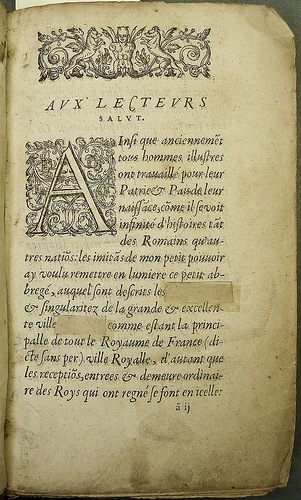 AVX LECTEVRS
SALVT.
AInsi que anciennemẽt
tous hommes illustres
ont travaillé pour leur
Patrie & Païs de leur
naissãce, cõme il se voit
infinité d'histoires tãt
des Romains qu'au-
tres natiõs: les imitãs de mon petit pouvoir
ay voulu remettre en lumiere ce petit ab-
bregé, auquel sont descrits les
& singularitez de la grande & excellen-
te ville comme estant la princi-
palle de tout le Royaume de France (di-
cte sans per) ville Royalle, d'autant que
les receptiõs, entrees & demeure ordinai-
re des Roys qui ont regné se font en icelle:
ã ij